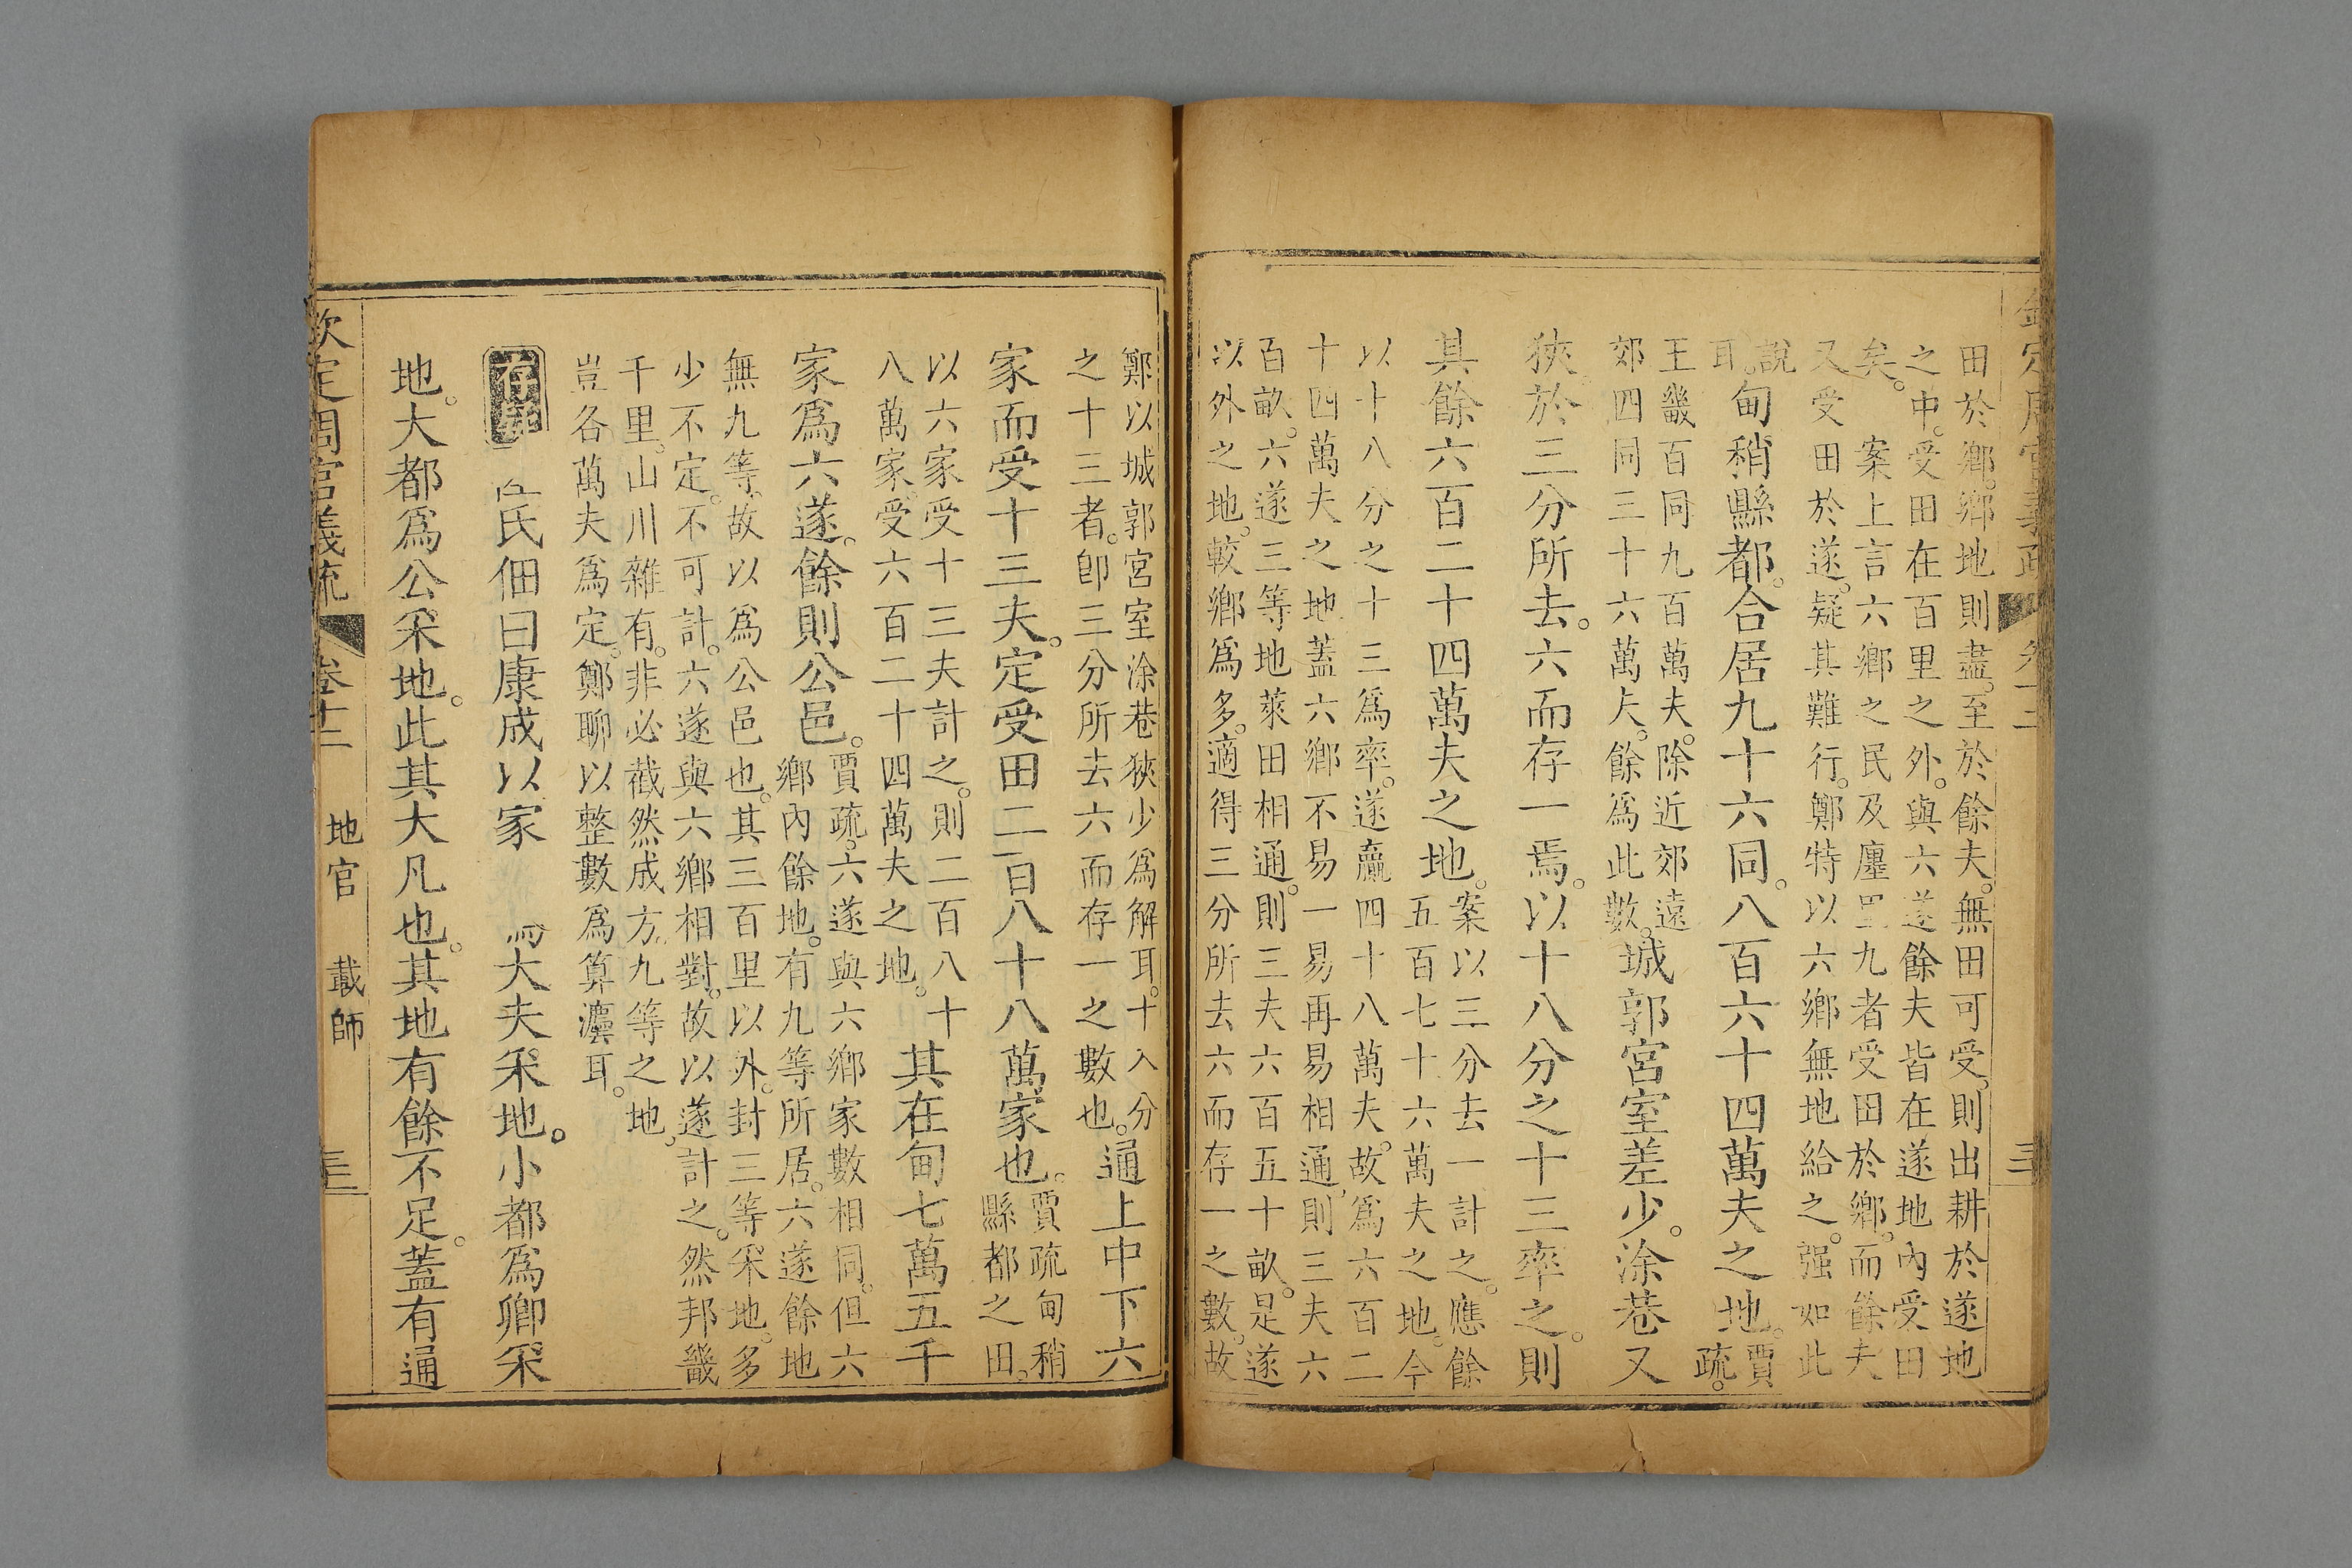 定周官義疏 卷十二 三
田於鄉。鄉地則盡。至於餘夫。無田可受。則出耕於遂地
之中。受田在百里之外。與六遂餘夫皆在遂地內受田
矣。 案上言六鄉之民及廛里九者受田於鄉。而餘夫
又受田於遂。疑其難行。鄭特以六鄉無地給之。强如此
說
耳。
甸稍縣都。合居九十六同。八百六十四萬夫之地。
賈
疏。
王畿百同九百萬夫。除近郊遠
郊四同三十六萬夫。餘爲此數。
城郭宮室差少。涂巷又
狹於三分所去。六而存一焉。以十八分之十三率之。則
其餘六百二十四萬夫之地。
案以三分去一計之。應餘
五百七十六萬夫之地。今
以十八分之十三爲率。遂贏四十八萬夫。故爲六百二
十四萬夫之地蓋六鄉不易一易再易相通則三夫六
百畝。六遂三等地萊田相通。則三夫六百五十畝。是遂
以外之地。較鄉爲多。適得三分所去六而存一之數。故
鄭以城郭宮室涂巷狹少爲解耳。十八分
之十三者。卽三分所去六而存一之數也。
通上中下六
家而受十三夫。定受田二百八十八萬家也。
賈疏甸稍
縣都之田。
以六家受十三夫計之。則二百八十
八萬家。受六百二十四萬夫之地。
其在甸七萬五千
家爲六遂。餘則公邑。
賈疏。六遂與六鄉家數相同。但六
鄉內餘地。有九等所居。六遂餘地
無九等。故以爲公邑也。其三百里以外。封三等采地。多
少不定。不可計。六遂與六鄉相對。故以遂計之。然邦畿
千里。山川雜有。非必截然成方。九等之地。
豈各萬夫爲定。鄭聊以整數爲算灋耳。
存 氏佃曰康成以家 大夫采地。小都爲卿采
地。大都爲公采地。此其大凡也。其地有餘不足。蓋有通
欽定周官義疏 卷十二 地官 載師 三